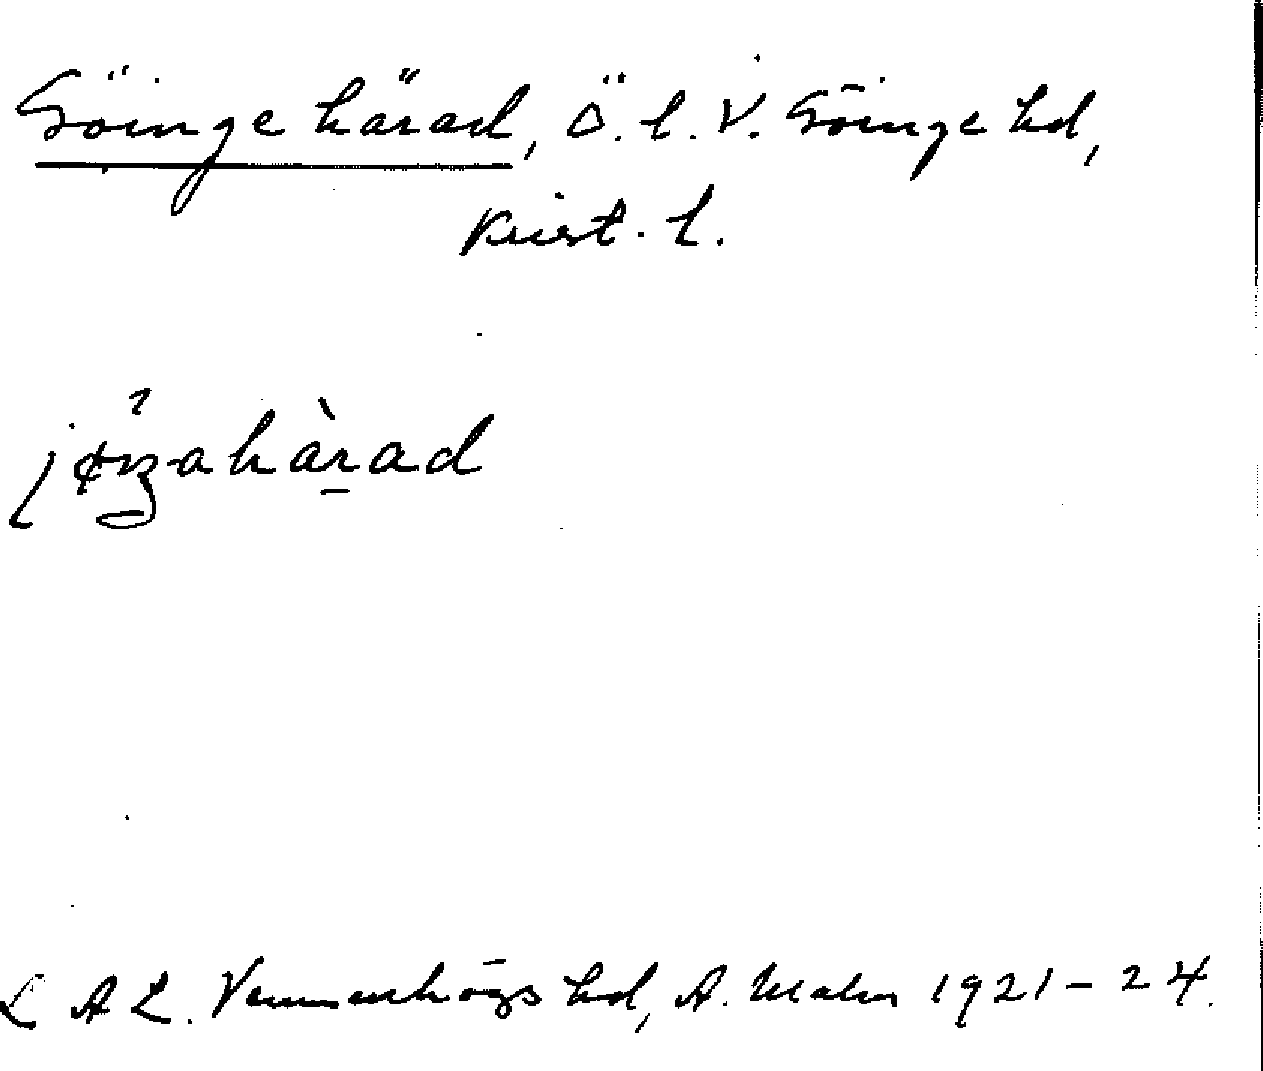 Göinge härad, Ö. l. V. Göinge hd,
Krist. l.
L A L. Vemmenhögs hd, A. Malm 1921-24.